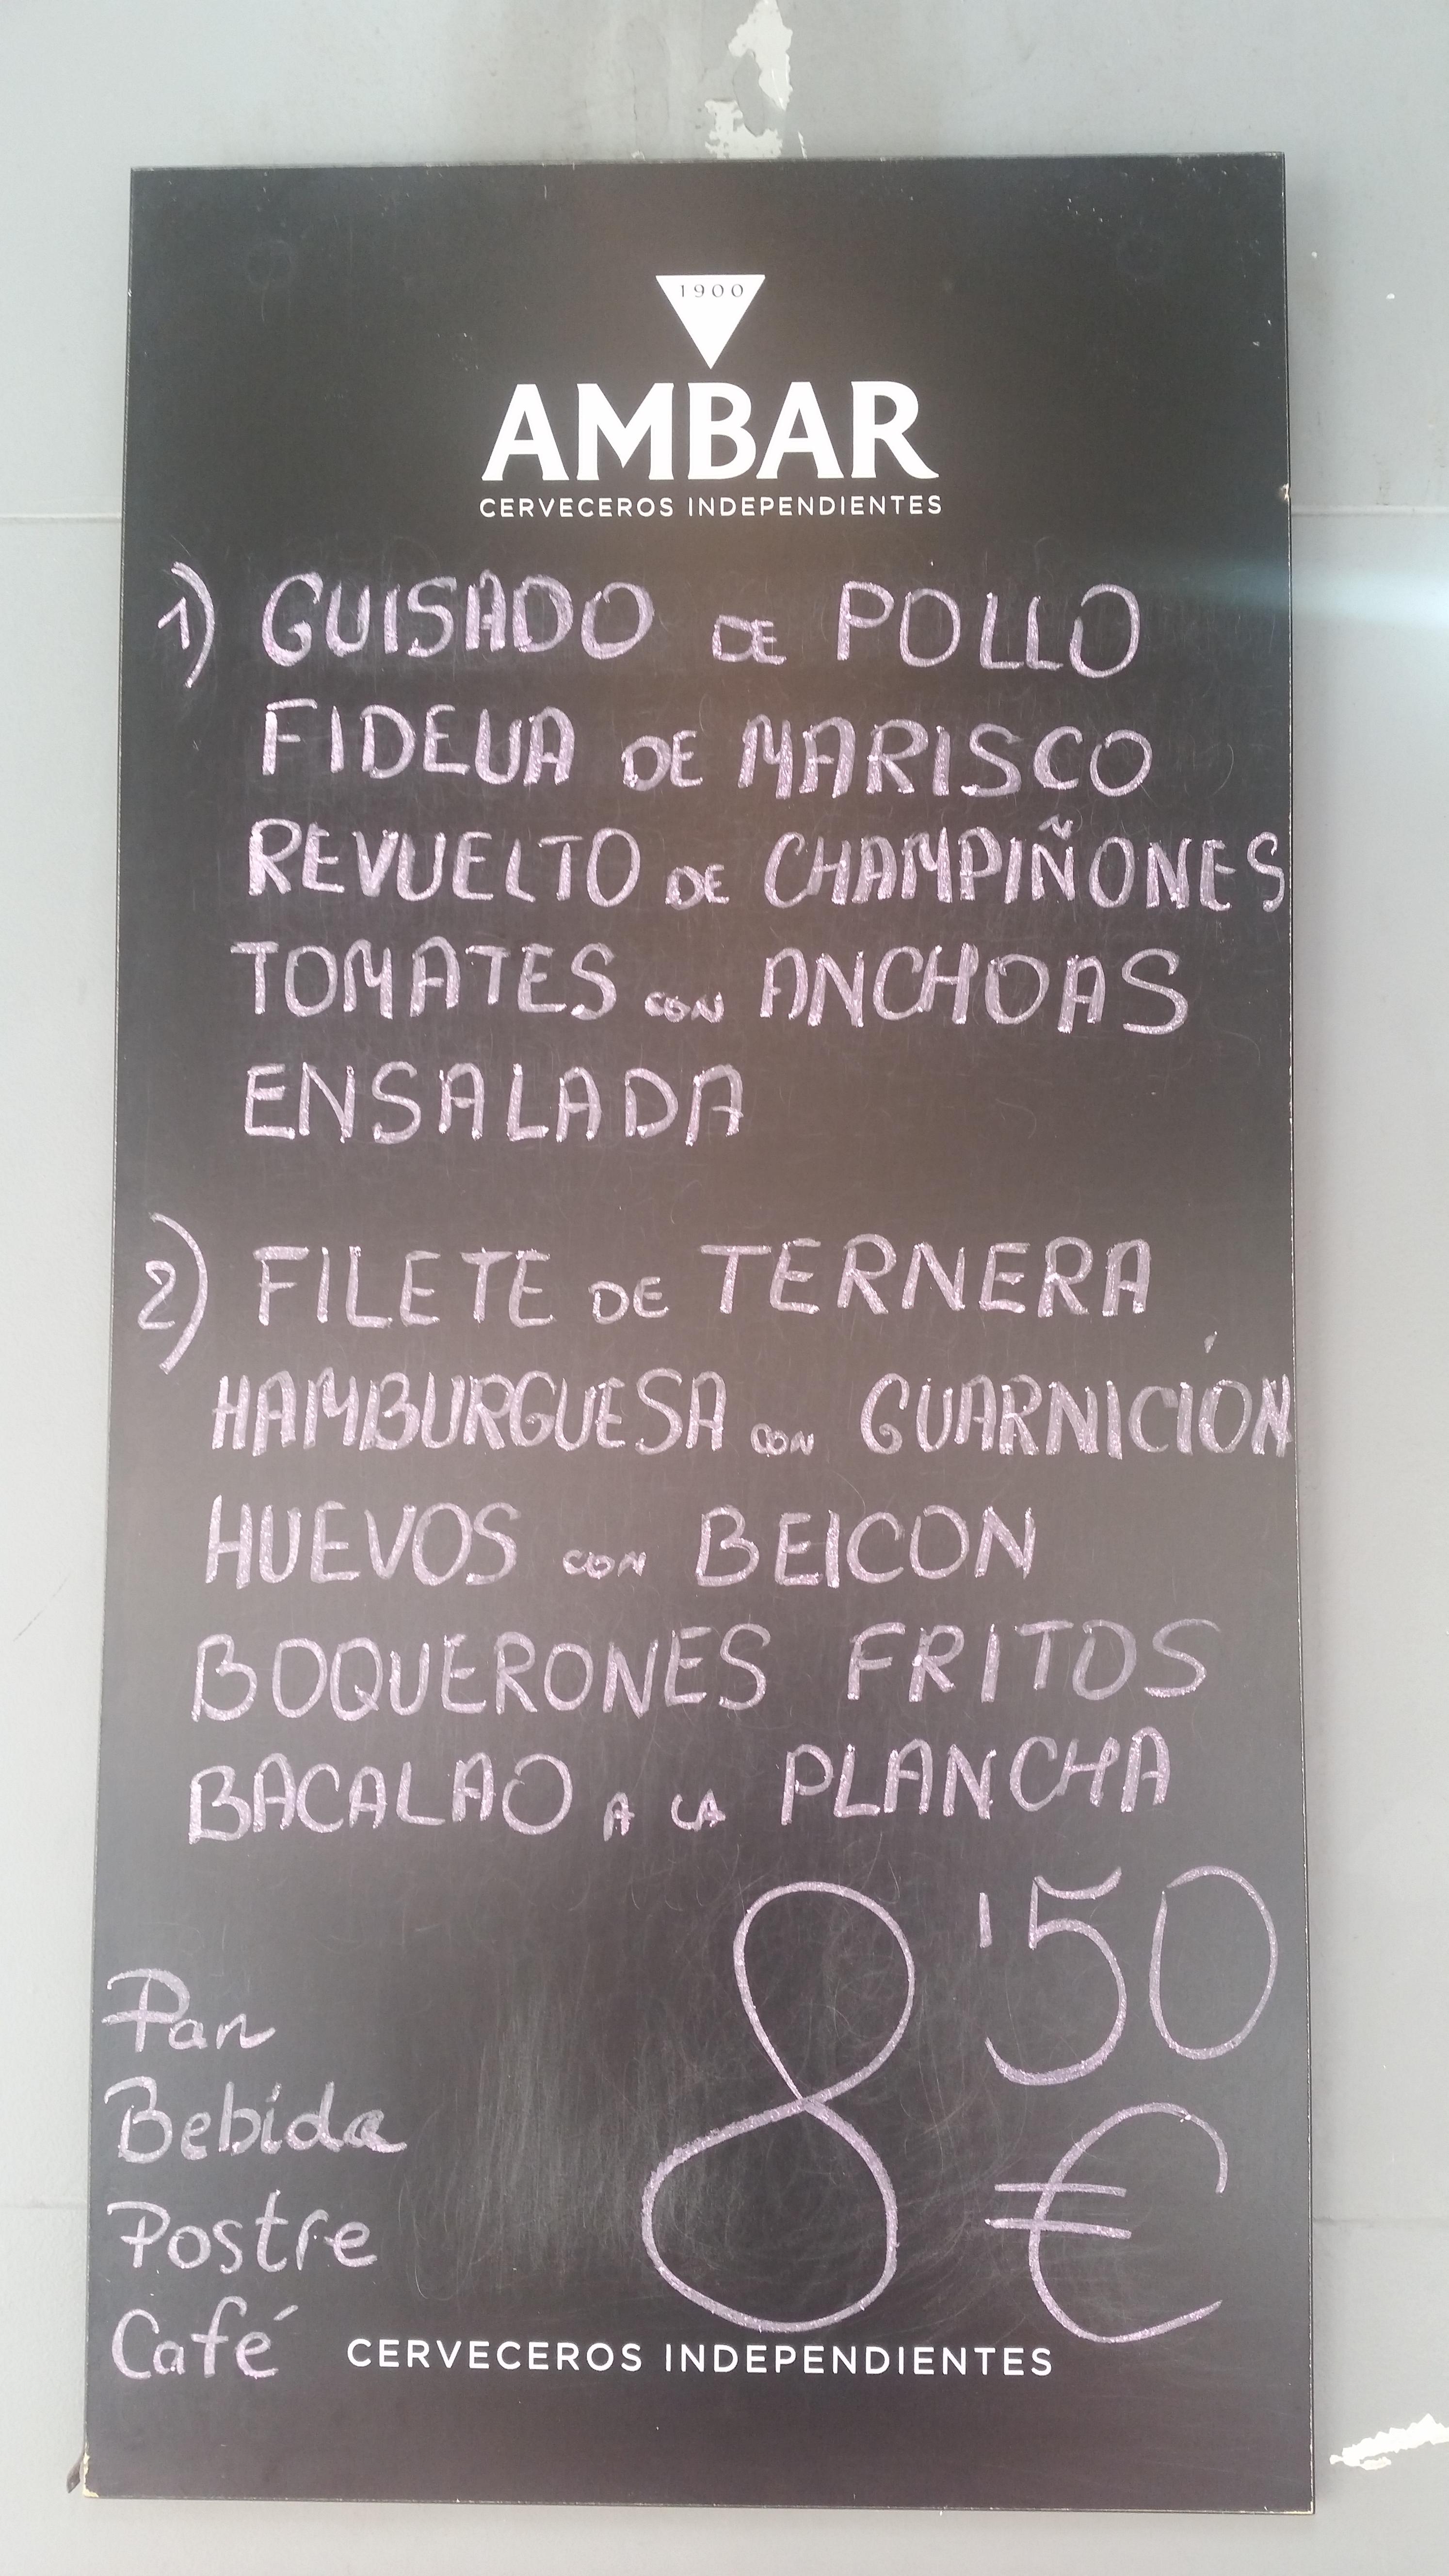 1900
AMBAR
CERVECEROS INDEPENDIENTES
1) GUISADO DE POLLO
FIDEUA DE MARISCO
REVUELTO DE CHAMPIÑONES
TOMATES CON ANCHOAS
ENSALADA
2) FILETE DE TERNERA
HAMBURGUESA CON GUARNICIÓN
HUEVOS CON BEICON
BOQUERONES FRITOS
BACALAO A LA PLANCHA
8'50 €
Pan
Bebida
Postre
Café
CERVECEROS INDEPENDIENTES